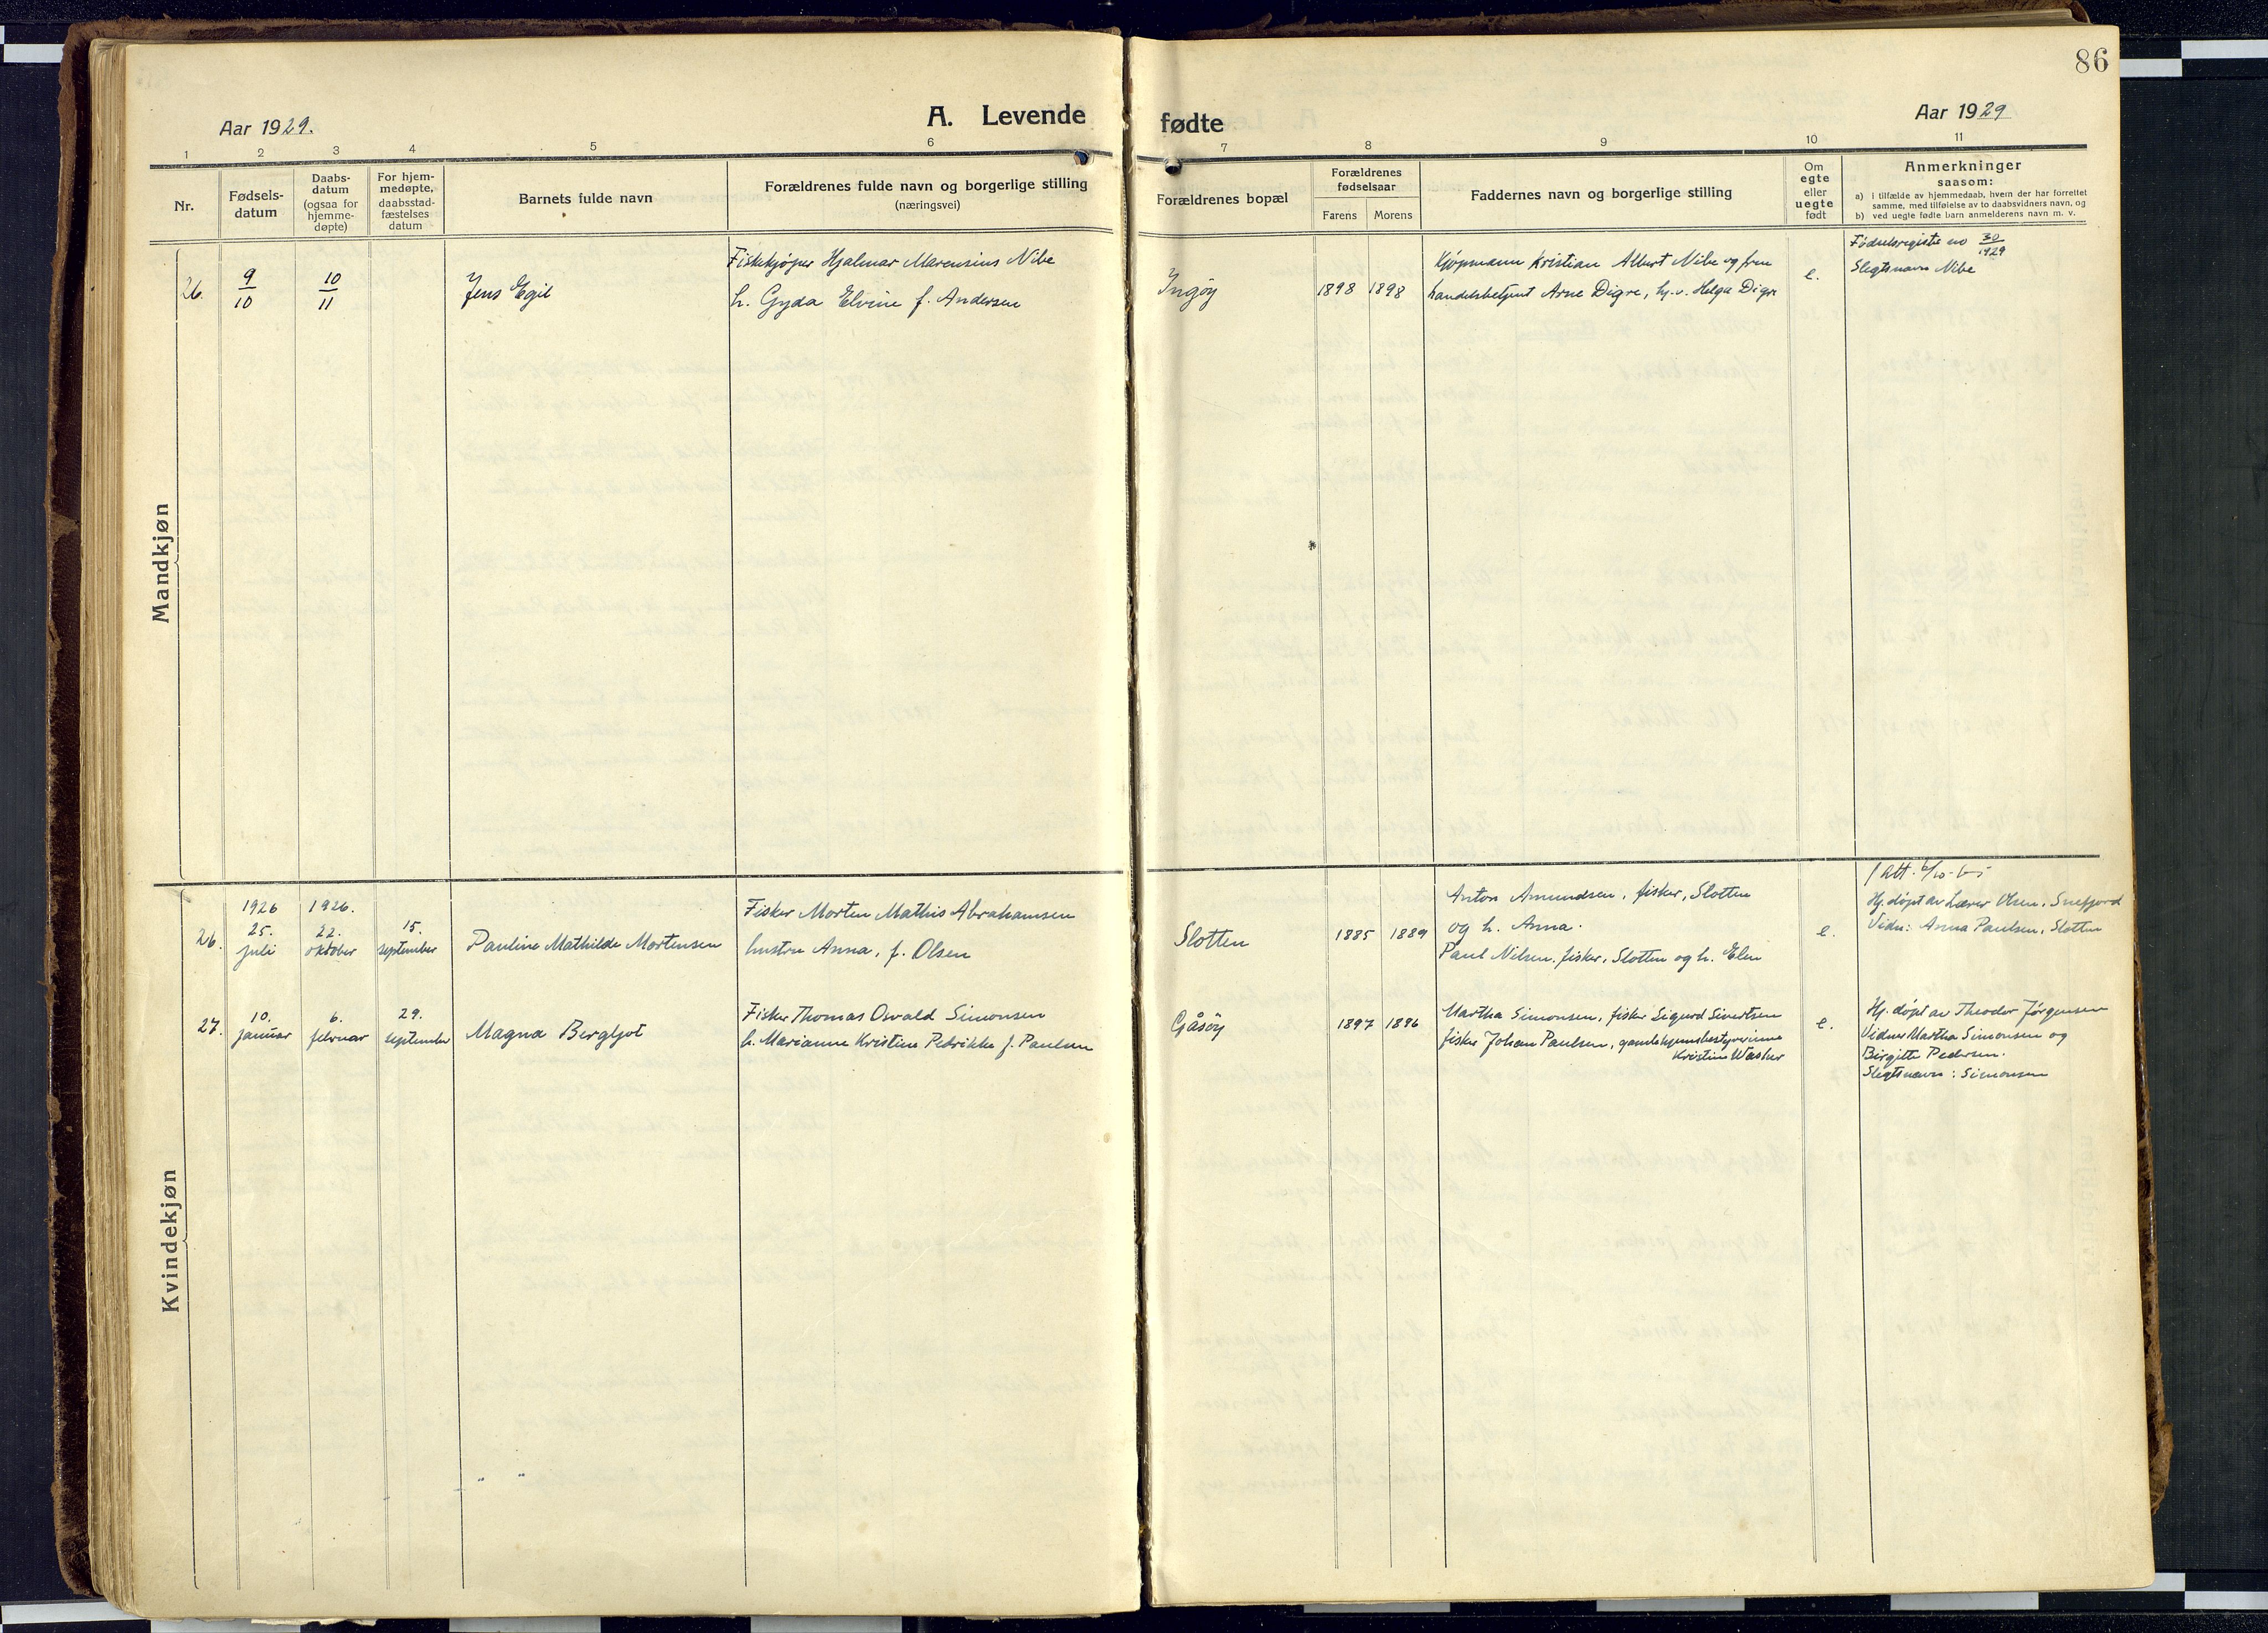 86
Aar 1929.
A. Levende
fødte
Aar 1929
1 2 3 4 5 6 7 8 9 10 11
Nr.
Fødsels-
datum
Daabs-
datum
(ogsaa for
hjemme-
døpte)
For hjem-
medøpte,
daabsstad-
fæstelses
datum
Barnets fulde navn
Forældrenes fulde navn og borgerlige stilling
(næringsvei)
Forældrenes bopæl
Forældrenes
fødselsaar
Farens Morens
Faddernes navn og borgerlige stilling
Om
egte
eller
uegte
født
Anmerkninger
saasom:
a) i tilfælde av hjemmedaab, hvem der har forrettet
samme, med tilføielse av to daabsvidners navn, og
b) ved uegte fødte barn anmelderens navn m. v.
Mandkjøn
26.
9/10
10/11
Jens Egil
Fiskekjøper Hjalmar Marensius Nibe
h. Gyda Elvine f. Andersen
Ingøy
1898 1898
Kjøpmann Kristian Albert Nibe og frue
handelsbetjent Arne Digre, hj.v. Helga Digre
e.
Fødselsregister no 30/1929
Slegtsnavn Nibe
Kvindekjøn
26.
1926
25.
juli
1926.
22.
oktober
15.
september
Pauline Mathilde Mortensen
Fisker Morten Mathis Abrahamsen
hustru Anna, f. Olsen
Slotten
1885 1889
Anton Amundsen, fisker, Slotten
og h. Anna.
Paul Nilsen, fisker, Slotten og h. Elen
e.
Hj. døpt av Lærer Olsen, Snefjord
Vidn: Anna Paulsen, Slotten
27.
10.
januar
6.
februar
29.
september
Magna Bergljot
Fisker Thomas Osvald Simonsen
h. Marianne Kristine Petrikke f. Paulsen
Gåsøy
1897 1896
Martha Simonsen, fisker Sigurd Sivertsen
fisker Johan Paulsen, gamlehjemsbestyrerinne
Kristine Wasker
e.
Hj. døpt av Theodor Jørgensen
Vidner Martha Simonsen og
Birgitte Pedersen.
Slegtsnavn: Simonsen